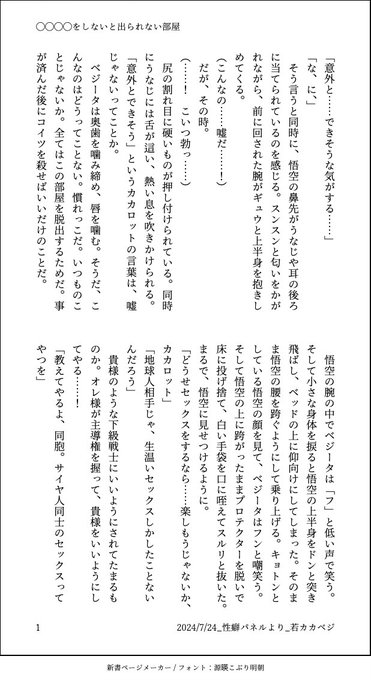 ○○○○をしないと出られない部屋
「意外と……できそうな気がする……」
「な、に、」
そう言うと同時に、悟空の鼻先がうなじや耳の後ろ
に当てられているのを感じる。スンスンと匂いをかが
れながら、前に回された腕がギュウと上半身を抱きし
めてくる。
(こんなの……嘘だ……!)
だが、その時。
(……! こいつ勃っ……)
尻の割れ目に硬いものが押し付けられている。同時
にうなじには舌が這い、熱い息を吹きかけられる。
「意外とできそう」というカカロットの言葉は、嘘
じゃないってことか。
ベジータは奥歯を噛み締め、唇を噛む。そうだ、こ
んなのはどうってことない。慣れっこだ。いつものこ
とじゃないか。全てはこの部屋を脱出するためだ。事
が済んだ後にコイツを殺せばいいだけのことだ。
悟空の腕の中でベジータは「フ」と低い声で笑う。
そして小さな身体を捩ると悟空の上半身をドンと突き
飛ばし、ベッドの上に仰向けにしてしまった。そのま
ま悟空の腰を跨ぐようにして乗り上げる。キョトンと
している悟空の顔を見て、ベジータはフンと嘲笑う。
そして悟空の上に跨がったままプロテクターを脱いで
床に投げ捨て、白い手袋を口に咥えてスルリと抜いた。
まるで、悟空に見せつけるように。
「どうせセックスをするなら……楽しもうじゃないか、
カカロット」
「地球人相手じゃ、生温いセックスしかしたことない
んだろう」
貴様のような下級戦士にいいようにされてたまるも
のか。オレ様が主導権を握って、貴様をいいようにし
てやる……!
「教えてやるよ、同胞。サイヤ人同士のセックスって
やつを」
1
2024/7/24_性癖パネルより_若カカベジ
新書ページメーカー / フォント：源暎こぶり明朝